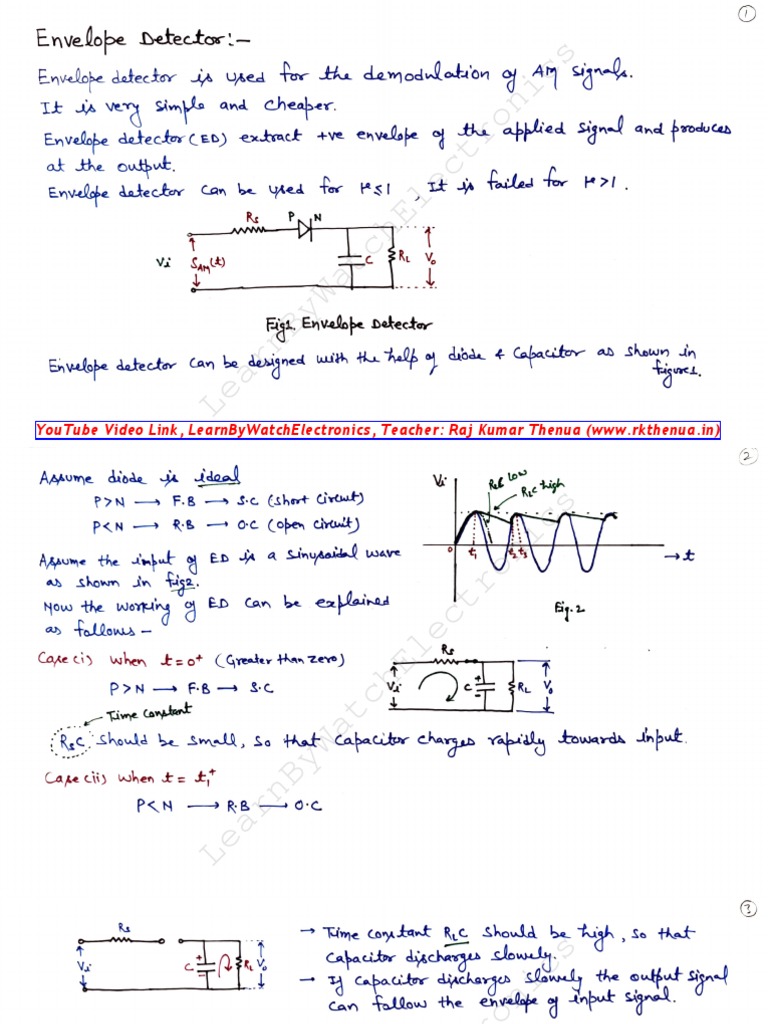 1
Envelope Detector:-
Envelope detector is used for the demodulation of AM signals.
It is very simple and cheaper.
Envelope detector (ED) extract +ve envelope of the applied signal and produces
at the output.
Envelope detector can be used for μ≤1, It is failed for μ>1.
Rs P N
Vi SAM(t) C RL Vo
Fig1. Envelope Detector
Envelope detector can be designed with the help of diode & Capacitor as shown in
figure1.
LearnByWatchElectronics
YouTube Video Link, LearnByWatchElectronics, Teacher: Raj Kumar Thenua (www.rkthenua.in)
2
Assume diode is ideal
P>N → F.B → S.C (short circuit)
P<N → R.B → O.C (open circuit)
Assume the input of ED is a sinusoidal wave
as shown in fig2.
Now the working of ED can be explained
as follows -
Vi
low
RLC high
0 t1 t2 t3 → t
Fig.2
Case (i) when t=0+ (Greater than zero)
P>N → F.B → S.C
Rs
Vi C RL Vo
Time Constant
RsC should be small, so that capacitor charges rapidly towards input.
Case (ii) when t = t1+
P<N → R.B → O.C
LearnByWatchElectronics
3
Rs
Vi C RL Vo
→ Time constant RLC should be high, so that
capacitor discharges slowely.
→ If capacitor discharges slowely the output signal
can follow the envelope of input signal.
onics